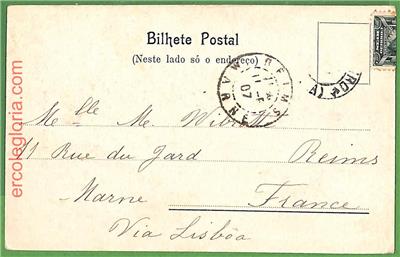 Bilhete Postal
(Neste lado só o endereço)
REIMS
MARNE
07
Melle Me.
11 Rue du Jard Reims
Marne France
Via Lisbôa
ercolegloria.com